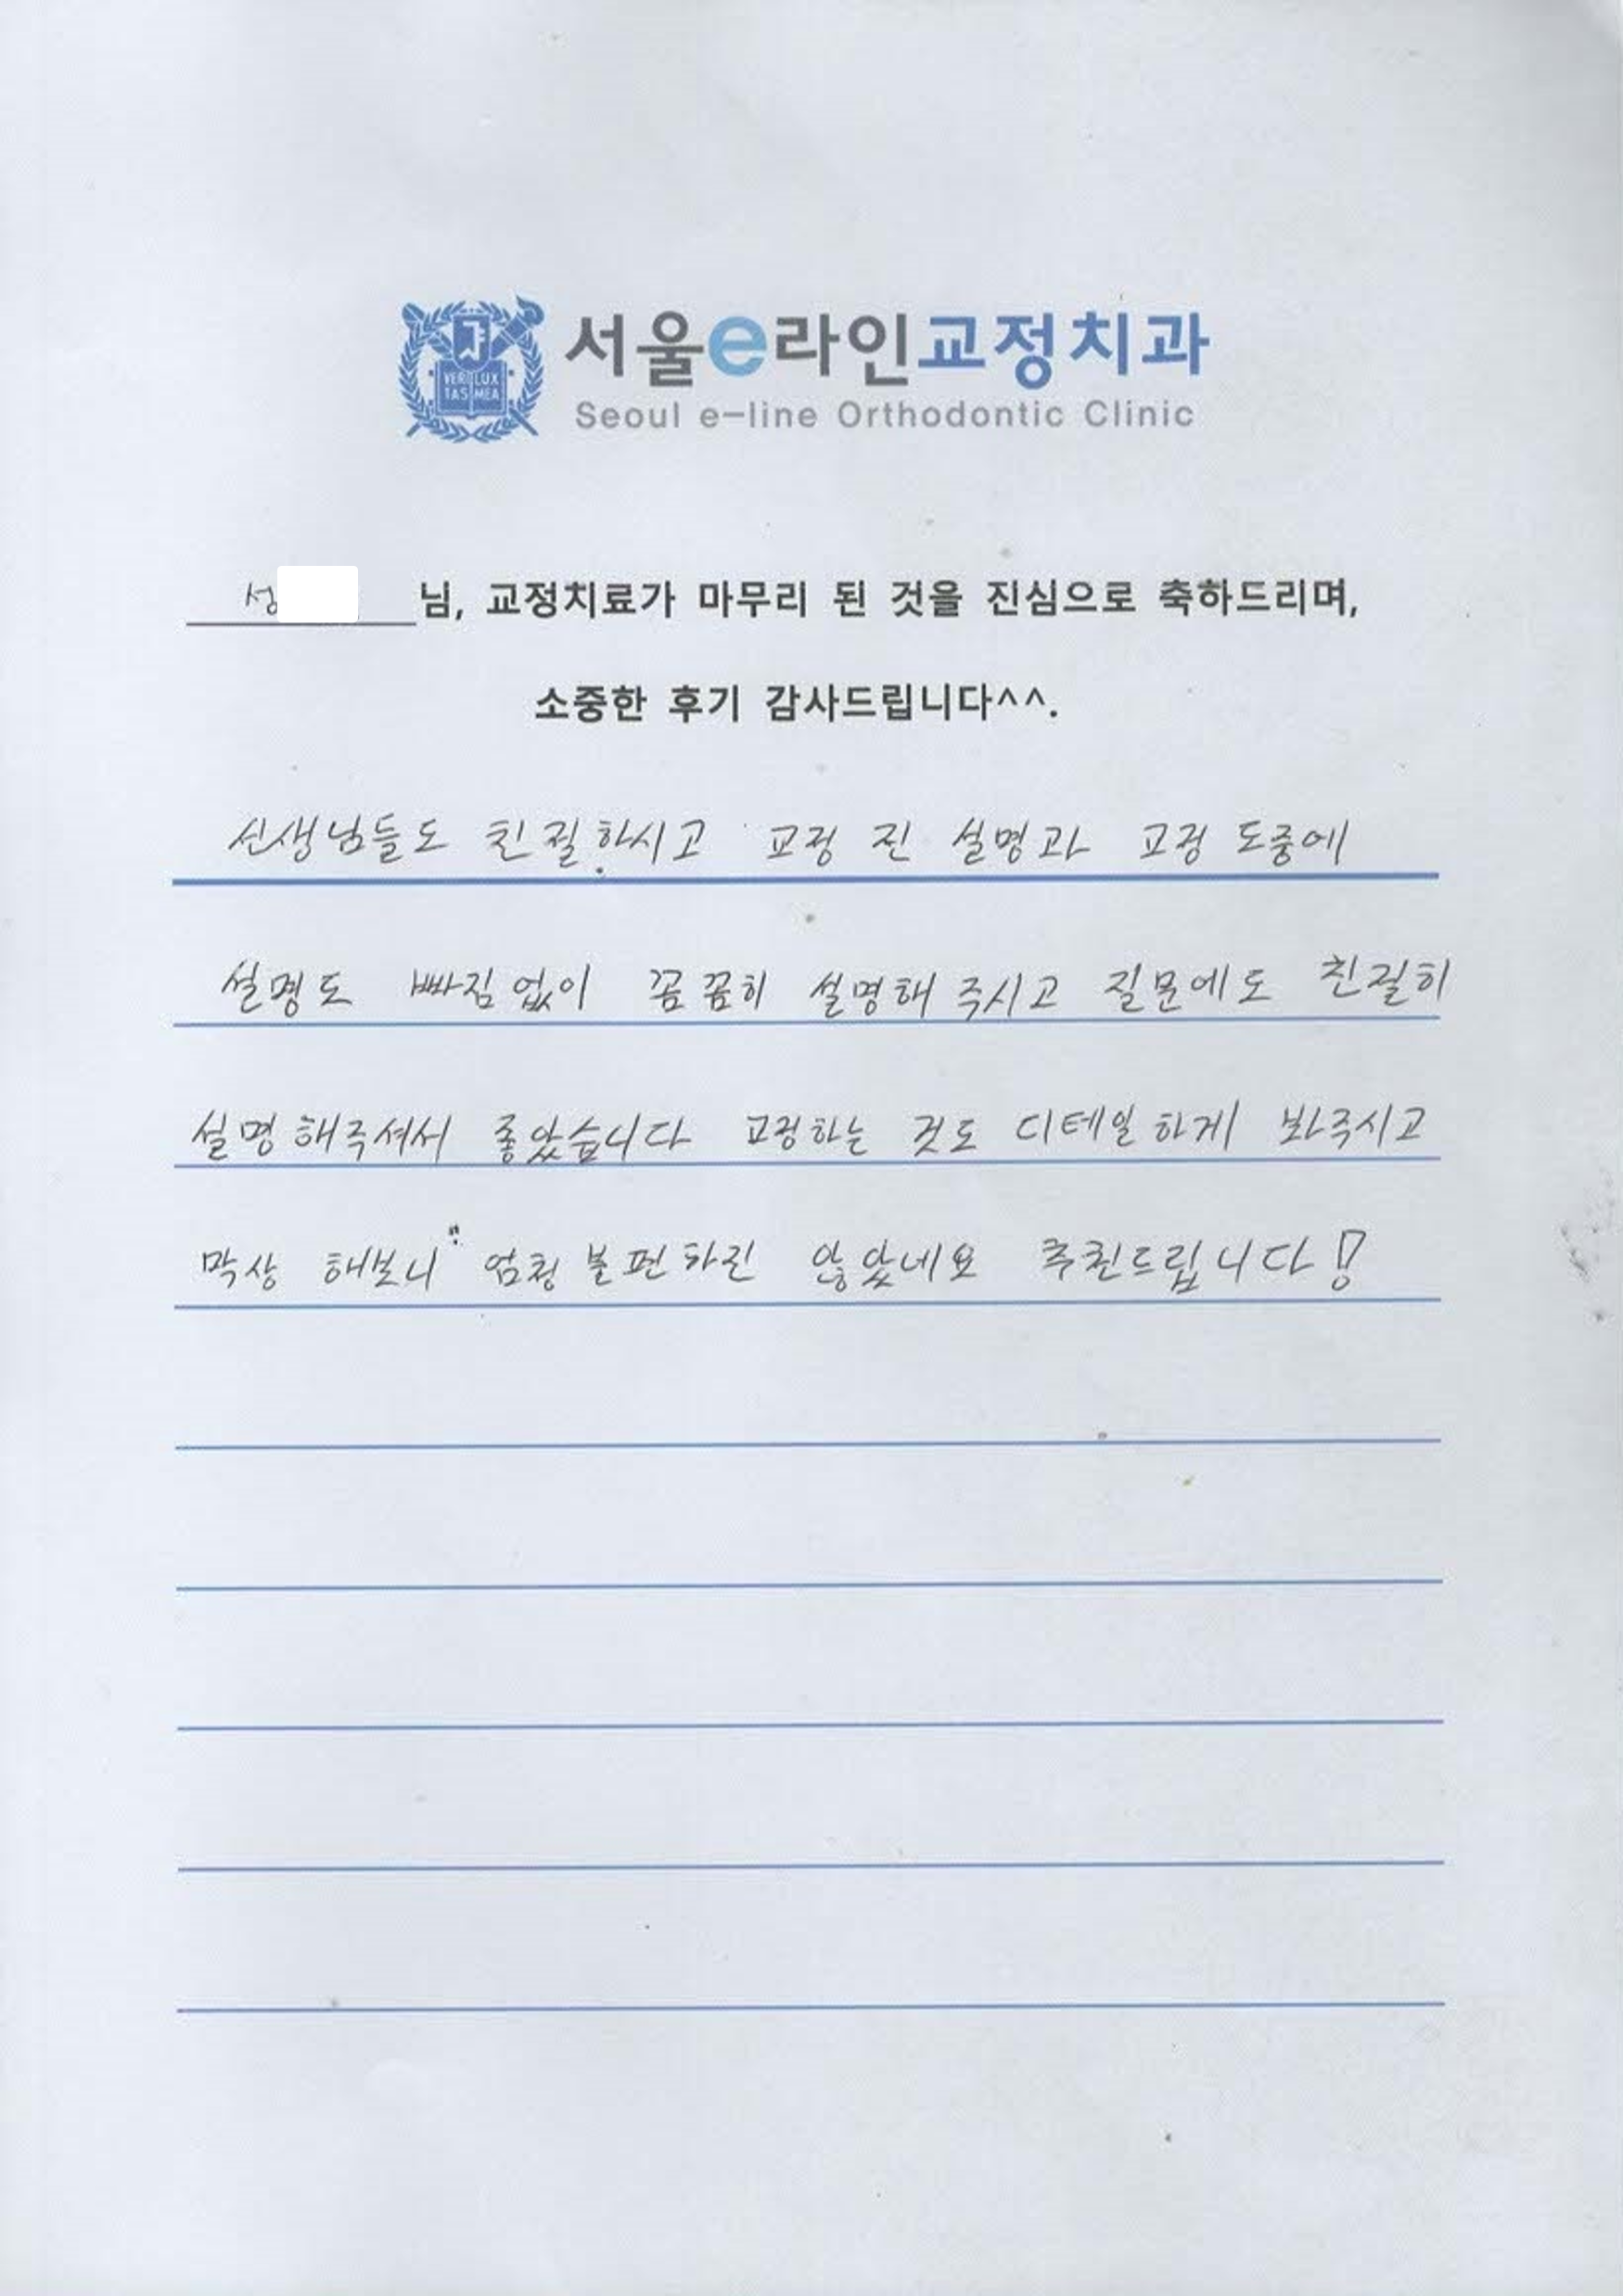 서울e라인교정치과
Seoul e-line Orthodontic Clinic
VERI LUX
TAS MEA
성 님, 교정치료가 마무리 된 것을 진심으로 축하드리며,
소중한 후기 감사드립니다^^.
선생님들도 친절하시고 교정 전 설명과 교정 도중에
설명도 빠짐없이 꼼꼼히 설명해 주시고 질문에도 친절히
설명해주셔서 좋았습니다 교정하는 것도 디테일하게 봐주시고
막상 해보니 엄청 불편하진 않았네요 추천드립니다!